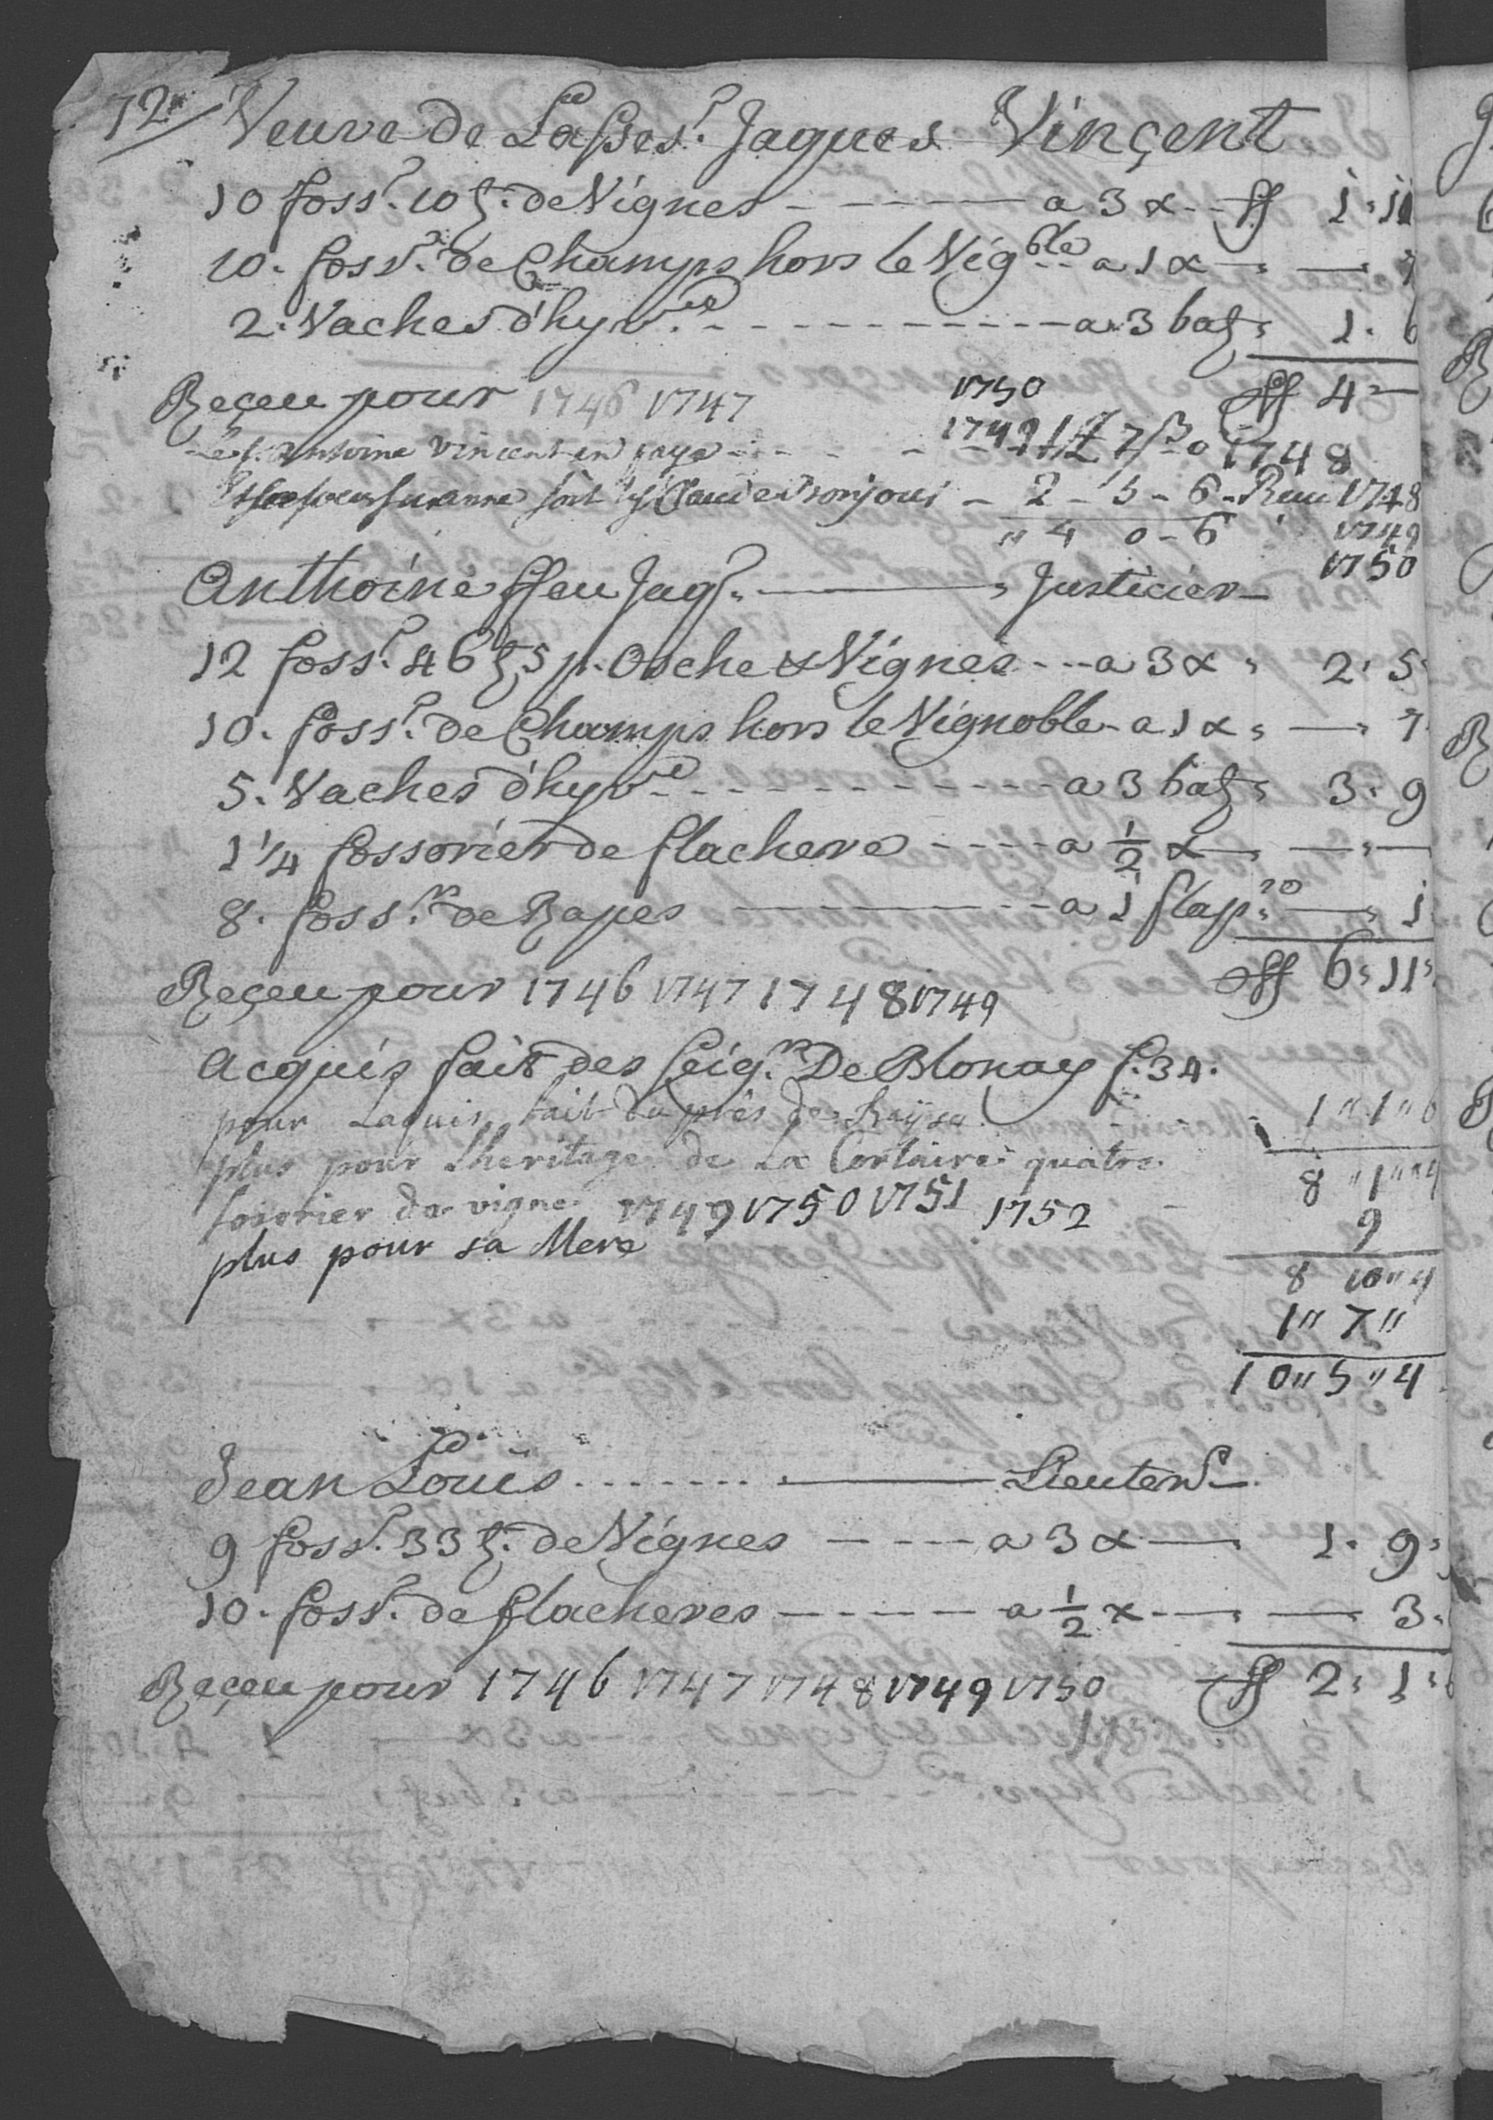 72
Veuve de L'asses.r Jaques Vinçent
10 foss.r 10 t. de Vignes - - - a 3 x - ff 1 · 11
10. foss.r de Champs hors le Vig.ble a 1 x — · — · 7
2. Vaches d'hyv.ge - - - a 3 batz · 1 · 6
ff 4 —
Reçeu pour 1746 1747 1750
Le s.r Antoine Vincent en paye - - - 1749 1 ff 7 ß - 0 1748
Suzanne font Claude Bonjour - 2 - 5 - 6 - Reçu 1748
" 4 0 - 6 1749
1750
Anthoine ffeu Jaq.s — Justicier —
12 foss.r 46 t. 5 p. Osche & Vignes - - - a 3 x · 2 · 5 ·
10. foss.r de Champs hors le Vignoble - a 1 x · — · 7
5. Vaches d'hyv.ge - - - a 3 batz · 3 · 9
1 1/4 fossorier de flachere - - - a 1/2 x — · — · —
8. foss.rs de Rapes — a 1 flap.s — · 1
ff 6 · 11 ·
Reçeu pour 1746 1747 1748 1749
Acquis fait des Seig.rs De Blonay f. 34.
pour Laquis fait du prés de - - - 1 " 1 " 6
plus pour Lheritage de La Cortaire quatre 8 " 1 " 4
foserier de vigne 1749 1750 1751 1752 9
plus pour sa Mere
8 10 " 4
1 " 7 "
10 " 5 " 4
Jean Louis . . . . . — Lieuten.t —
9 foss.r 33 t. de Vignes - - - a 3 x — · 1 · 9 ·
10. foss.r de flacheres - - - a 1/2 x — · — 3 ·
Reçeu pour 1746 1747 1748 1749 1750 ff 2 · 1 · 6
1751